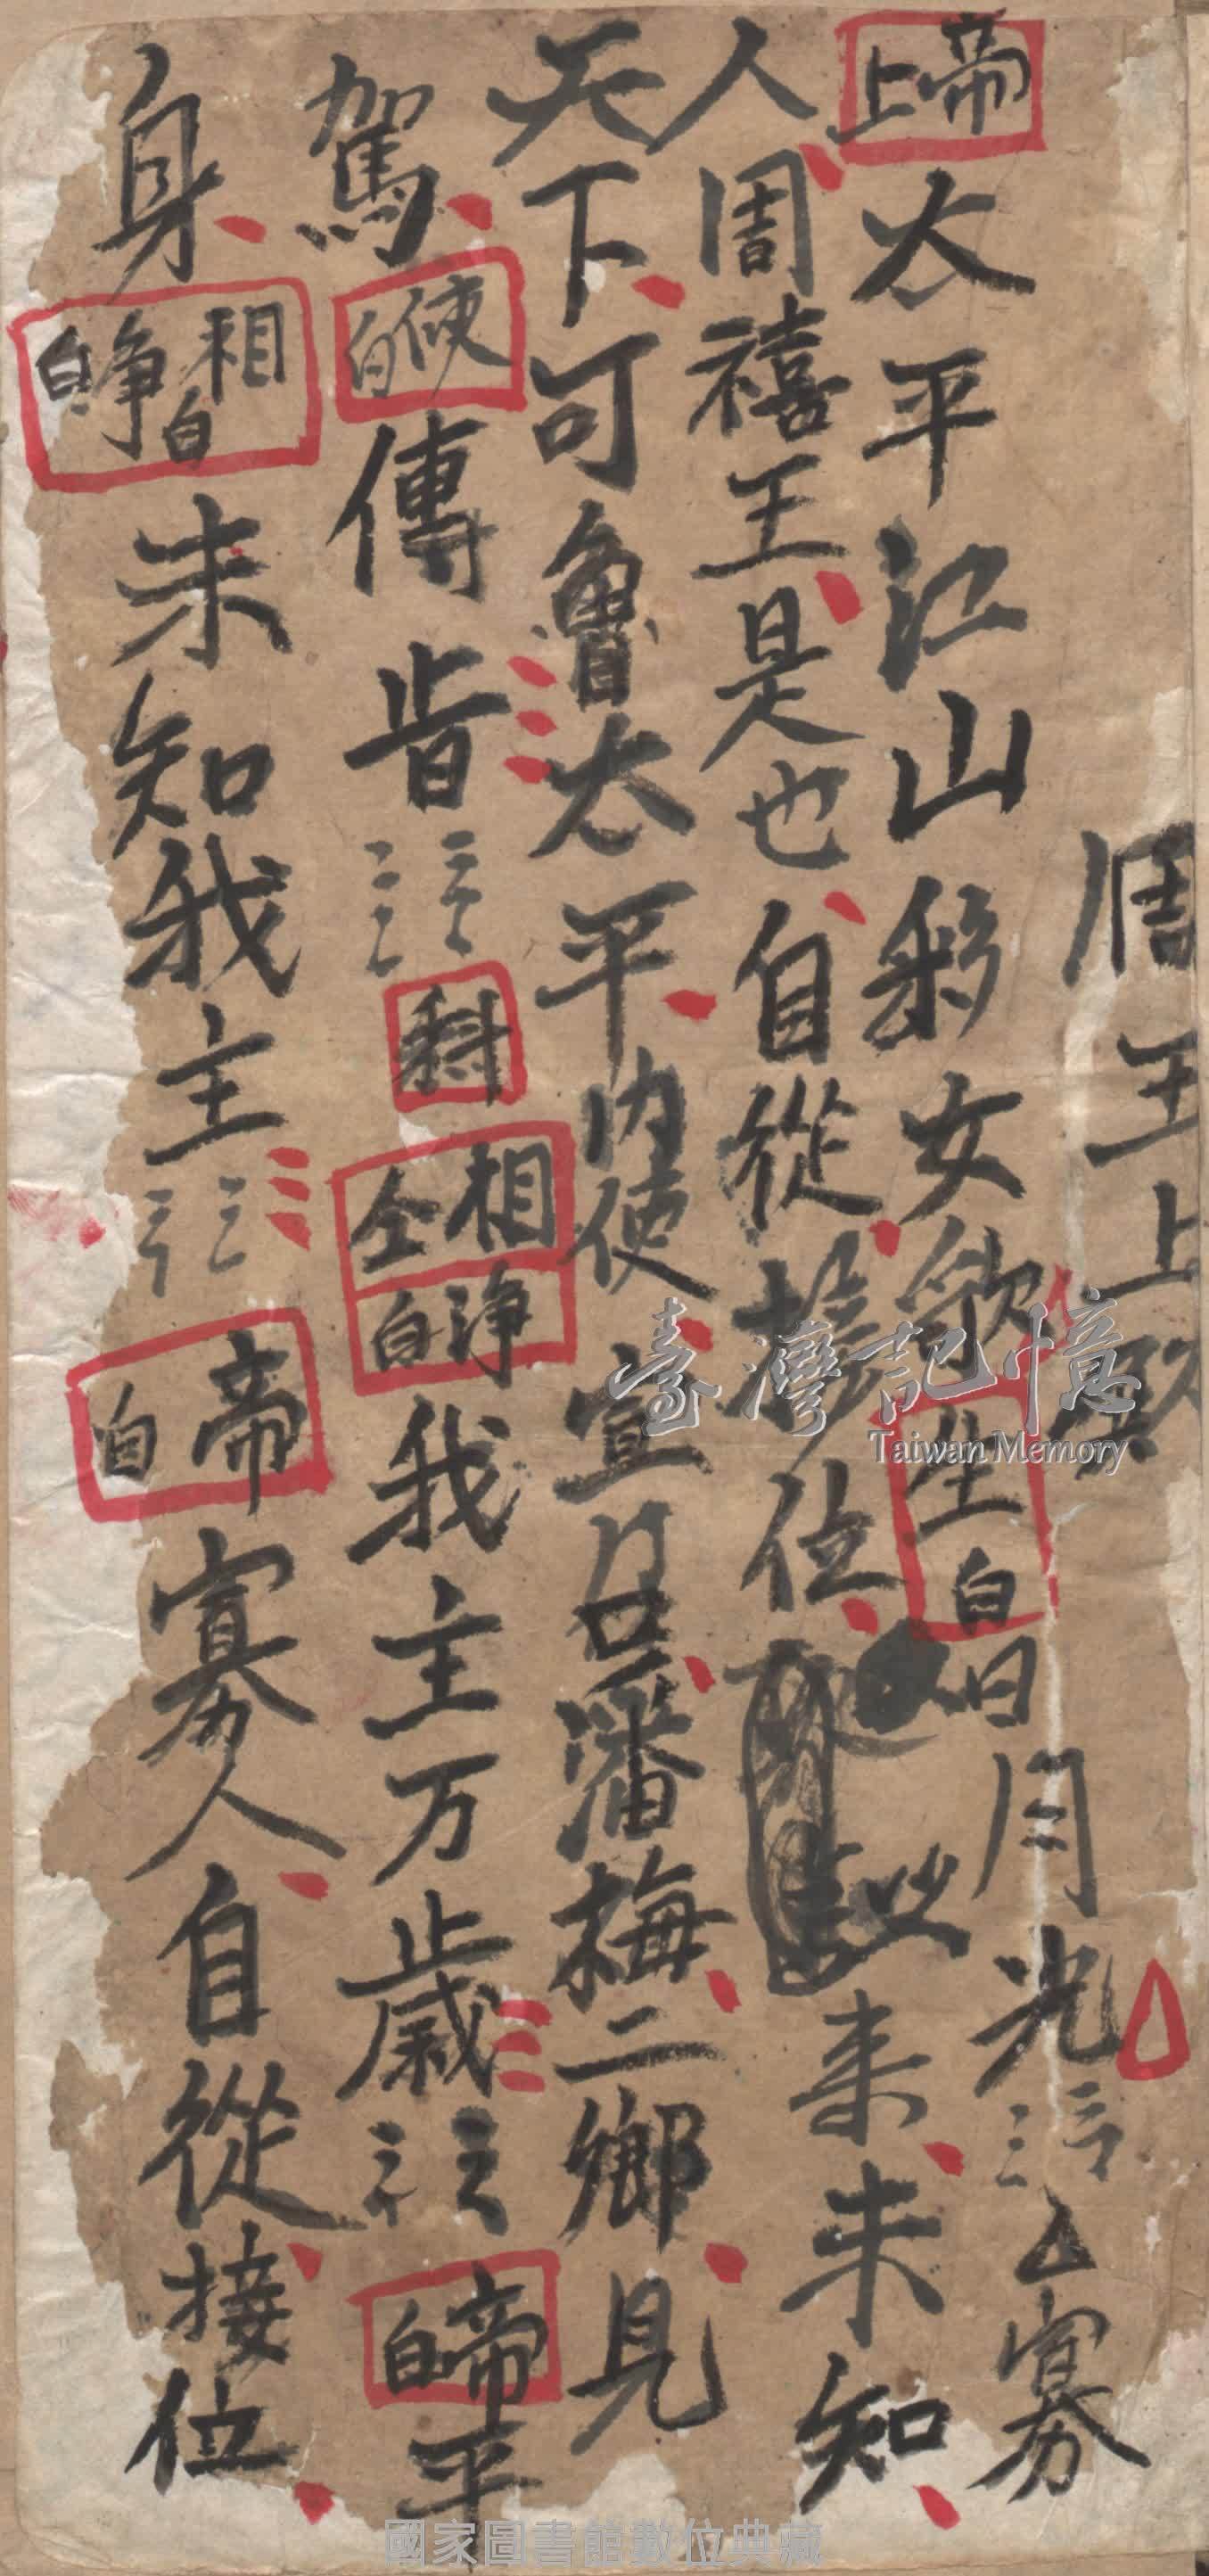 周王上殿
帝上 太平江山彩女歌 生白 日月光 寡
人周禧王是也自從接位以來未知
天下可魯太平內使宣召潘梅二鄉見
駕 使白 傳旨 科 相净全白 我主万歲 帝白 平
身 相白 净白 未知我主 帝白 寡人自從接位
臺灣記憶
Taiwan Memory
國家圖書館數位典藏